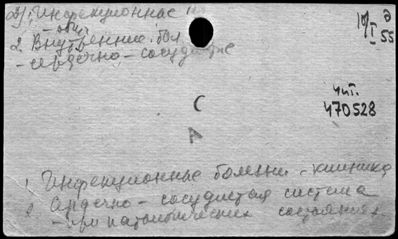 1. Инфекционные
- общ.
2. Внутренние бол
- сердечно - сосудистые
19/I 55
С
А
чит.
470528
1. Инфекционные болезни - клиника
2. Сердечно - сосудистая система
- при патологических состояниях